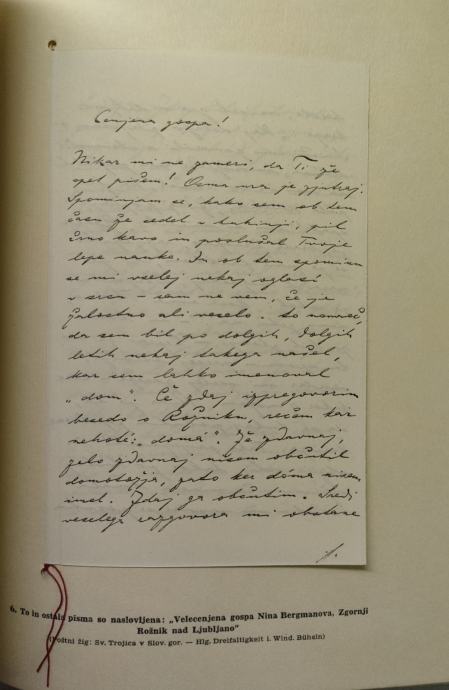 Cenjena gospa!
Nikar mi ne zameri, da Ti že
spet pišem! Osma ura je zjutraj.
Spominjam se, kako sem ob tem
času že sedel v kuhinji, pil
črno kavo in poslušal Tvoje
lepe nauke. In ob tem spominu
se mi vselej nekaj oglasi
v srcu – sam ne vem, če je
žalostno ali veselo. To namreč,
da sem bil po dolgih, dolgih
letih nekaj takega našel,
kar sem lahko imenoval
„dom“. Če zdaj izpregovorim
besedo o Rožniku, rečem kar
nehoté: „doma“. Že zdavnaj,
zelo zdavnaj nisem občutil
domotožja, zato ker dóma nisem
imel. Zdaj ga občutim. Sredi
veselega razgovora mi obstane
6. To in ostala pisma so naslovljena: „Velecenjena gospa Nina Bergmanova, Zgornji
Rožnik nad Ljubljano“
(Poštni žig: Sv. Trojica v Slov. gor. — Hlg. Dreifaltigkeit i. Wind. Büheln)